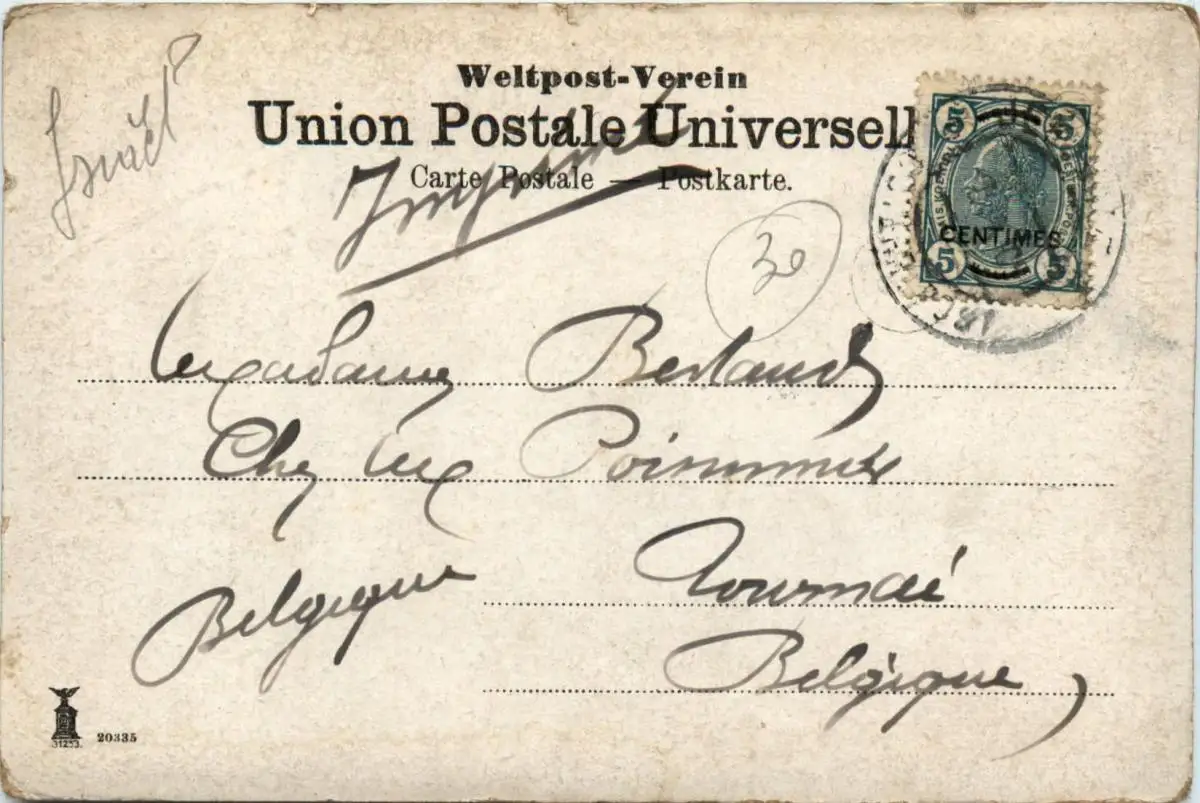 Israël ?
Weltpost-Verein
Union Postale Universell
Carte Postale — Postkarte.
Imprimé
30
5 5
CENTIMES
5 5
Madame Berlaud
Chez Mx
Tournai
Belgique
Belgique
31253.
20335